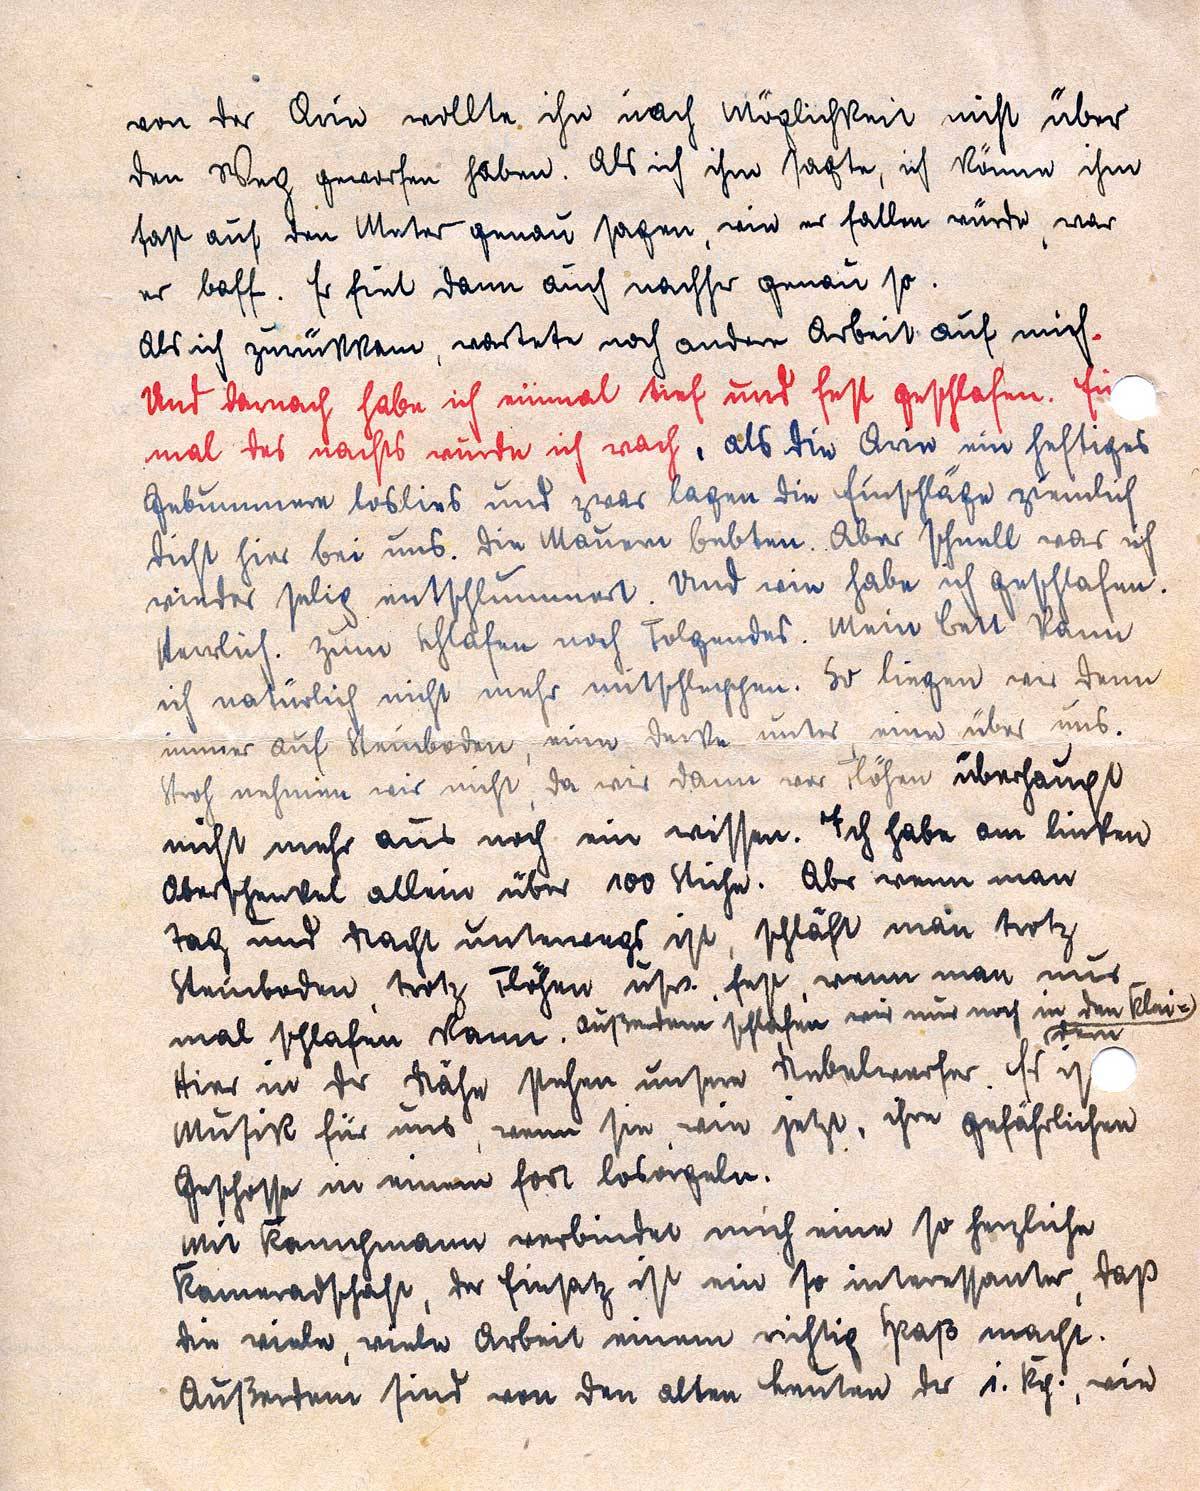 von der Arie wollte ihn nach Möglichkeit nicht über
den Weg geworfen haben. Als ich ihm sagte, ich könne ihm
fast auf den Meter genau sagen, wie er fallen würde, war
er baff. Er fiel dann auch nachher genau so.
Als ich zurückkam, wartete noch andere Arbeit auf mich.
Und darnach habe ich einmal tief und fest geschlafen. Ein
mal des nachts wurde ich wach, als die Arie ein heftiges
Gebummere loslies und zwar lagen die Einschläge ziemlich
dicht hier bei uns. Die Mauern bebten. Aber schnell war ich
wieder selig entschlummert. Und wie habe ich geschlafen.
Herrlich. Zum Schlafen noch Folgendes. Mein Bett kann
ich natürlich nicht mehr mitschleppen. So liegen wir denn
immer auf Steinboden, eine Decke unter, eine über uns.
Stroh nehmen wir nicht, da wir dann vor Flöhen überhaupt
nicht mehr aus noch ein wissen. Ich habe am linken
Oberschenkel allein über 100 Stiche. Aber wenn man
Tag und Nacht unterwegs ist, schläft man trotz
Steinboden, trotz Flöhen usw. fest, wenn man nur
mal schlafen kann. Außerdem schlafen wir nur noch in den Klei=
dern
Hier in der Nähe stehen unsere Nebelwerfer. Es ist
Musik für uns, wenn sie, wie jetzt, ihre gefährlichen
Geschosse in einem fort losorgeln.
Mit Kamchmann verbindet mich eine so herzliche
Kameradschaft, der Einsatz ist ein so interessanter, daß
die viele, viele Arbeit einem richtig Spaß macht.
Außerdem sind von den alten Leuten der 1. Kp., wie